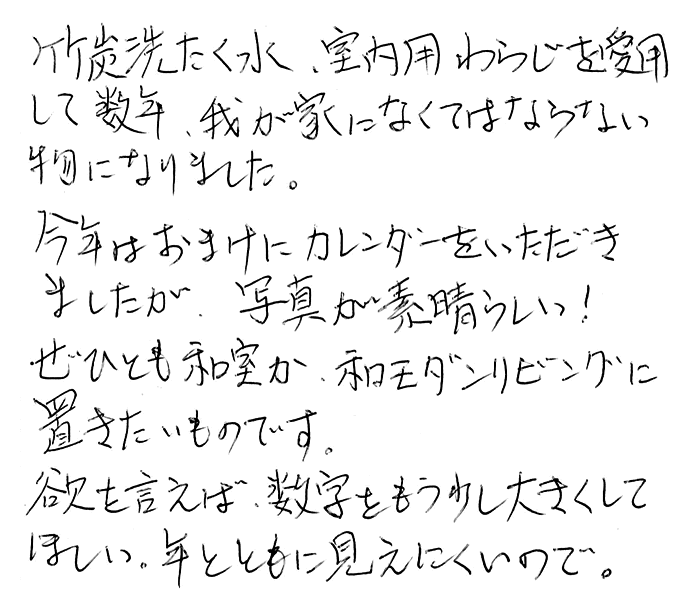 竹炭洗たく水、室内用わらじを愛用
して数年、我が家になくてはならない
物になりました。
今年はおまけにカレンダーをいただき
ましたが、写真が素晴らしい!
ぜひとも和室か、和モダンリビングに
置きたいものです。
欲を言えば、数字をもう少し大きくして
ほしい。年とともに見えにくいので。